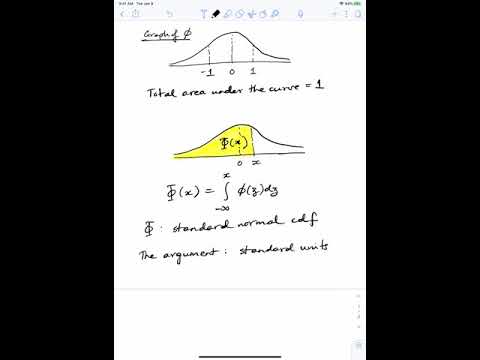 9:41 AM Tue Jan 9
Graph of ϕ
-1 0 1
Total area under the curve = 1
Φ(x)
0 x
Φ(x) = ∫_{-∞}^{x} ϕ(z)dz
Φ : standard normal cdf
The argument : standard units